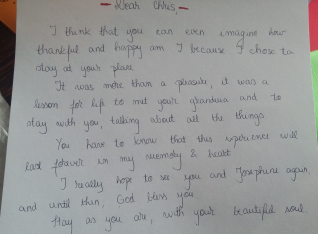 - Dear Chris, -
I think that you can even imagine how
thankful and happy am I because I chose to
stay at your place.
It was more than a pleasure, it was a
lesson for life to met your grandma and to
stay with you, talking about all the things
You have to know that this experience will
last forever in my memory & heart
I really hope to see you and Josephine again,
and until then, God bless you
Stay as you are, with your beautiful soul.